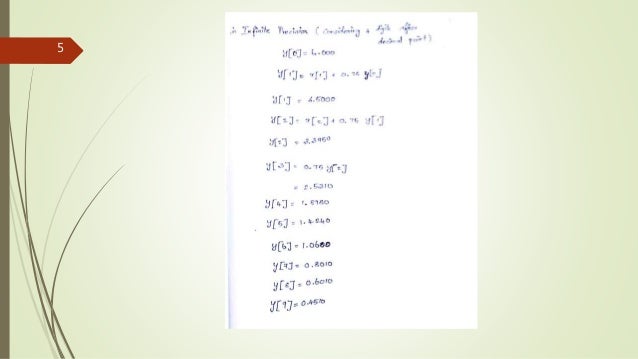 5
in Infinite Precision (considering 4 digit after
decimal point)
y[0] = 6.000
y[1] = x[1] + 0.75 y[0]
y[1] = 4.5000
y[2] = x[2] + 0.75 y[1]
y[2] = 3.3750
y[3] = 0.75 y[2]
= 2.5310
y[4] = 1.8980
y[5] = 1.4240
y[6] = 1.0680
y[7] = 0.8010
y[8] = 0.6010
y[9] = 0.4510